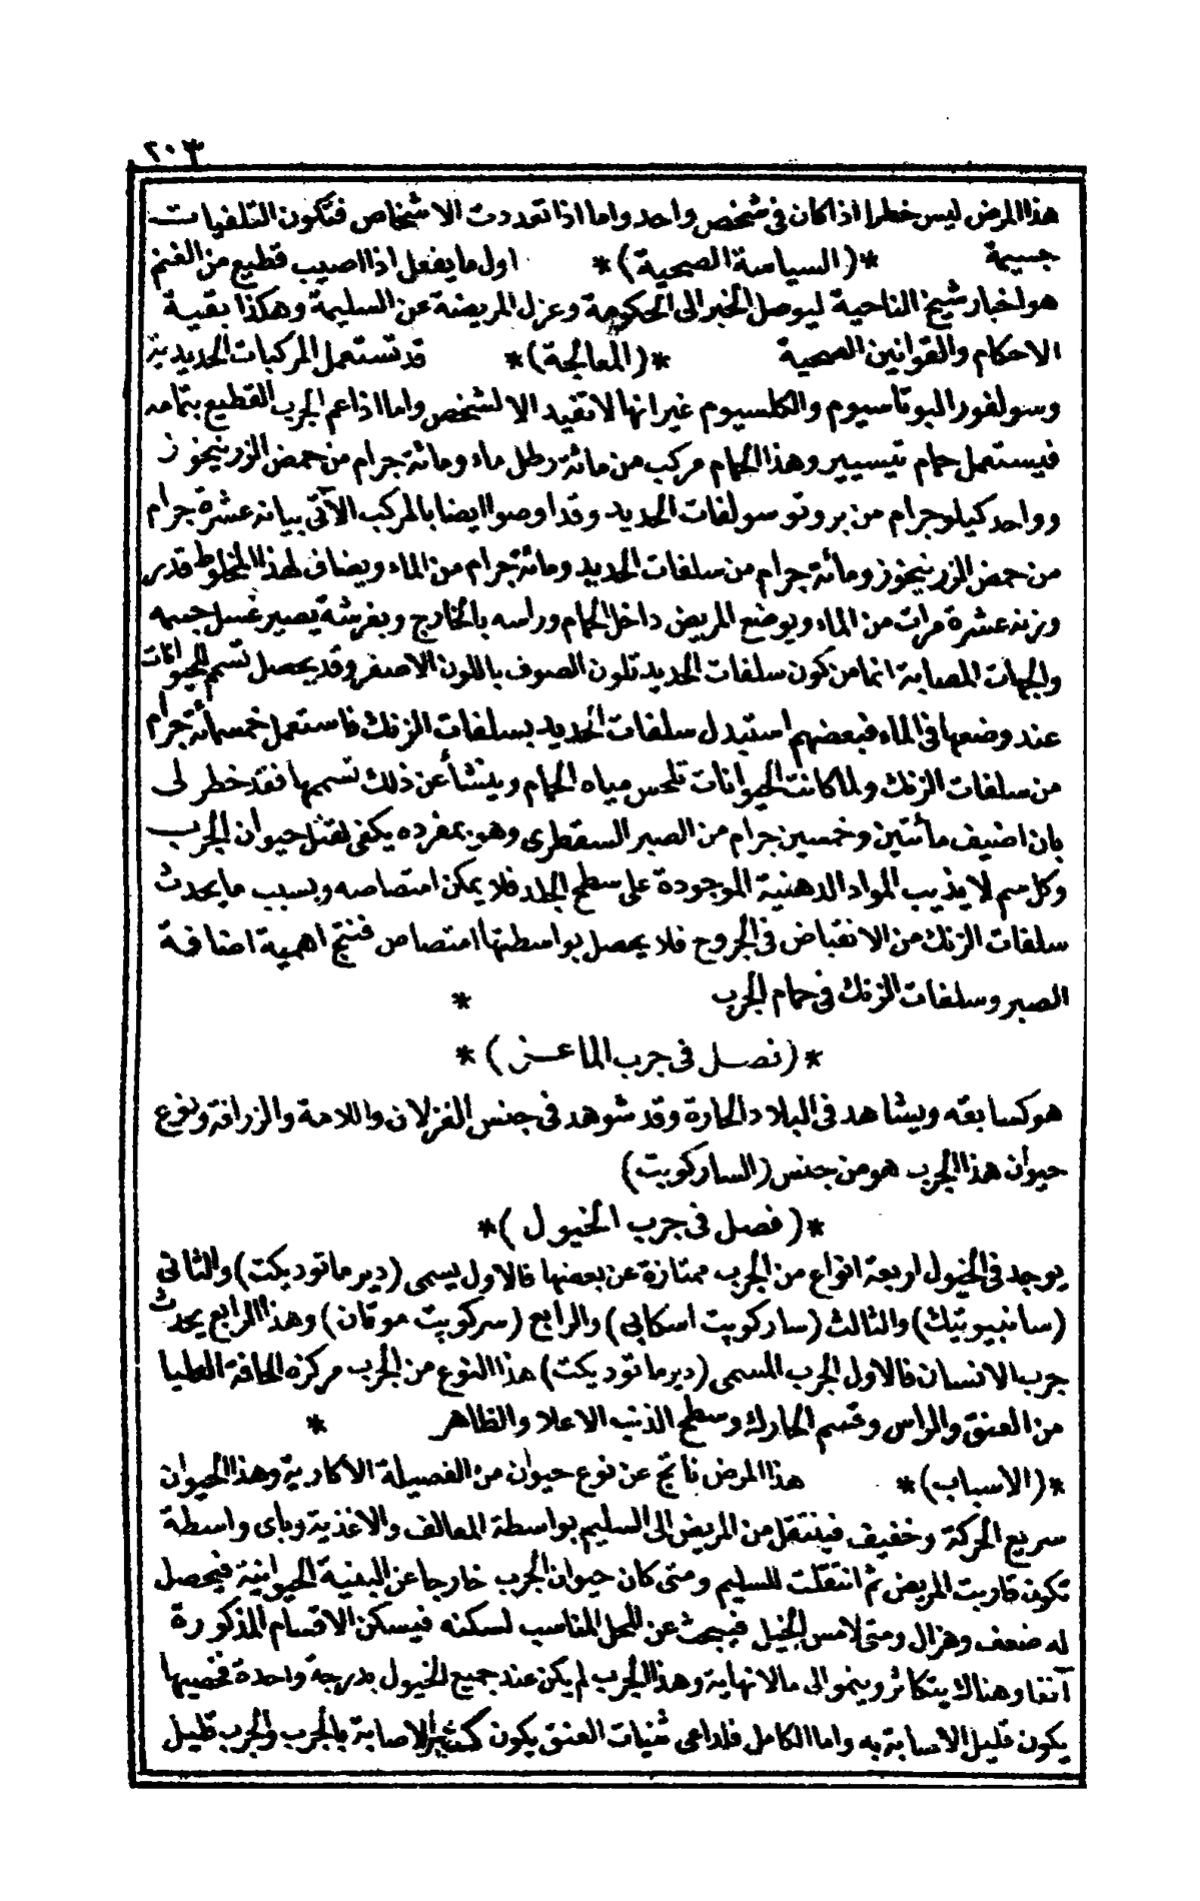 ٢٠٣
هذا المرض ليس خطرا اذا كان فى شخص واحد واما اذا تعددت الاشخاص فتكون التلفيات
جسيمة *(السياسة الصحية)* اول ما يفعل اذا اصيب قطيع من الغنم
هو اخبار شيخ الناحية ليوصل الخبر الى الحكومة وعزل المريضة عن السليمة وهكذا بقية
الاحكام والقوانين الصحية *(المعالجة)* قد تستعمل المركبات الحديدية
وسولفور البوتاسيوم والكلسيوم غير انها لا تفيد الا لشخص واما اذا عم الجرب القطيع بتمامه
فيستعمل حمام تيسيير وهذا الحمام مركب من مائة رطل ماء ومائة جرام من حمض الزرنيخوز
وواحد كيلوجرام من بروتو سولفات الحديد وقد اوصوا ايضا بالمركب الآتى بيانه عشرة جرام
من حمض الزرنيخوز ومائة جرام من سلفات الحديد ومائة جرام من الماء ويضاف لهذا المخلوط قدر
وزنه عشرة مرات من الماء ويوضع المريض داخل الحمام وراسه بالخارج وبفرشة يصير غسل جسمه
والجهات المصابة انما من كون سلفات الحديد تلون الصوف باللون الاصفر وقد يحصل تسمم للحيوانات
عند وضعها فى الماء فبعضهم استبدل سلفات الحديد بسلفات الزنك فاستعمل خمسمائة جرام
من سلفات الزنك ولما كانت الحيوانات تلحس مياه الحمام وينشأ عن ذلك تسممها فقد خطر لى
بان اضيف مأتين وخمسين جرام من الصبر السقطرى وهو بمفرده يكفى لقتل حيوان الجرب
وكل سم لا يذيب المواد الدهنية الموجودة على سطح الجلد فلا يمكن امتصاصه وبسبب ما يحدث
سلفات الزنك من الانقباض فى الجروح فلا يحصل بواسطتها امتصاص فنتج اهمية اضافة
الصبر وسلفات الزنك فى حمام الجرب *
*(نصل فى جرب الماعز)*
هو كسابقه ويشاهد فى البلاد الحارة وقد شوهد فى جنس الغزلان واللامة والزرافة ونوع
حيوان هذا الجرب هو من جنس (الساركوبت)
*(فصل فى جرب الخيول)*
يوجد فى الخيول اربعة انواع من الجرب ممتازة عن بعضها فالاول يسمى (ديرماتوديكت) والثانى
(سانبيوتيك) والثالث (ساركوبت اسكابى) والرابع (سركوبت موتان) وهذا الرابع يحدث
جرب الانسان فالاول الجرب المسمى (ديرماتوديكت) هذا النوع من الجرب مركزه الحافة العليا
من العنق والراس وقسم الحارك وسطح الذنب الاعلا والظاهر *
*(الاسباب)* هذا المرض ناتج عن نوع حيوان من الفصيلة الاكارية وهذا الحيوان
سريع الحركة وخفيف فينتقل من المريض الى السليم بواسطة المعالف والاغذية وباى واسطة
تكون قاربت المريض ثم انتقلت للسليم ومتى كان حيوان الجرب خارجا عن البنية الحيوانية فيحصل
له ضعف وهزال ومتى لامس الخيل فيبحث عن المحل المناسب لسكنه فيسكن الاقسام المذكورة
آنفا وهناك يتكاثر وينمو الى مالا نهاية وهذا الجرب لم يكن عند جميع الخيول بدرجة واحدة فخصيها
يكون قليل الاصابة به واما الكامل فلداعى ثنيات العنق يكون كثير الاصابة بالجرب والجرب قليل